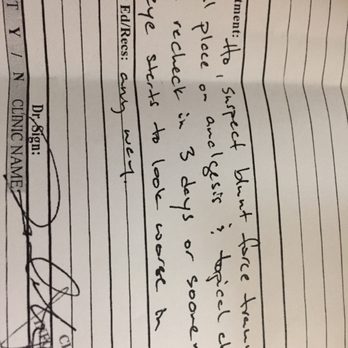 tment: Ho, suspect blunt force trau
place on analgesia & topical
recheck in 3 days or soone
eye starts to look worse in
Ed/Recs: any way.
Dr. Sign:
T Y / N CLINIC NAME: